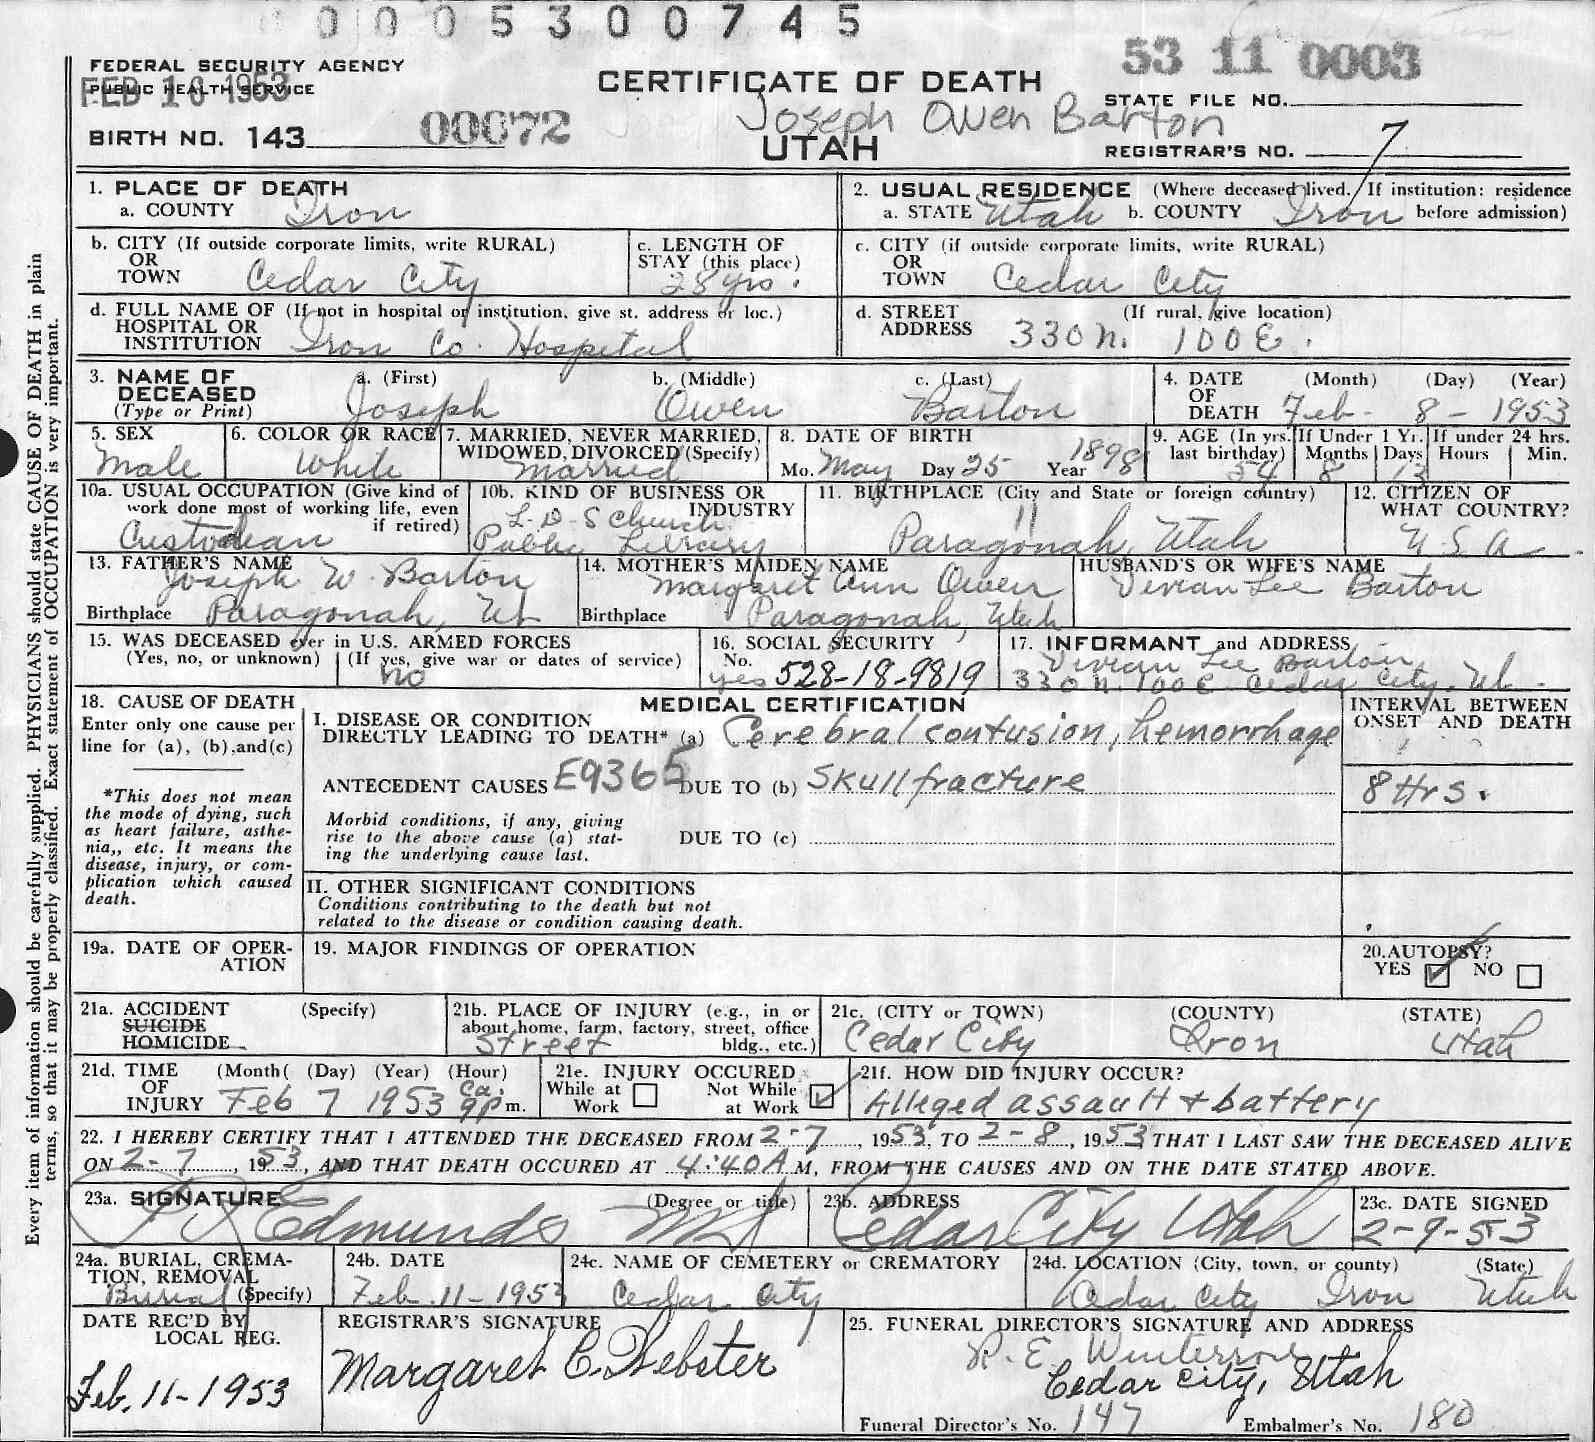 0 0 0 5 3 0 0 7 4 5
53 11 0003
FEDERAL SECURITY AGENCY
PUBLIC HEALTH SERVICE
FEB 16 1953
CERTIFICATE OF DEATH
STATE FILE NO.
Joseph Owen Barton
BIRTH NO. 143 00672
UTAH
REGISTRAR'S NO. 7
1. PLACE OF DEATH
a. COUNTY Iron
2. USUAL RESIDENCE (Where deceased lived. If institution: residence before admission)
a. STATE Utah b. COUNTY Iron
b. CITY (If outside corporate limits, write RURAL)
OR
TOWN Cedar City
c. LENGTH OF
STAY (this place)
28 yrs.
c. CITY (if outside corporate limits, write RURAL)
OR
TOWN Cedar City
d. FULL NAME OF (If not in hospital or institution, give st. address or loc.)
HOSPITAL OR
INSTITUTION Iron Co. Hospital
d. STREET (If rural, give location)
ADDRESS 330 N. 100 E.
3. NAME OF
DECEASED
(Type or Print)
a. (First) b. (Middle) c. (Last)
Joseph Owen Barton
4. DATE (Month) (Day) (Year)
OF
DEATH Feb - 8 - 1953
5. SEX
Male
6. COLOR OR RACE
White
7. MARRIED, NEVER MARRIED,
WIDOWED, DIVORCED (Specify)
Married
8. DATE OF BIRTH
Mo. May Day 25 Year 1898
9. AGE (In yrs. last birthday) 54
If Under 1 Yr. Months 8 Days 13
If under 24 hrs. Hours Min.
10a. USUAL OCCUPATION (Give kind of
work done most of working life, even
if retired)
Custodean
10b. KIND OF BUSINESS OR
INDUSTRY
L.D.S Church
Public Library
11. BIRTHPLACE (City and State or foreign country)
Paragonah, Utah
12. CITIZEN OF
WHAT COUNTRY?
U.S.A.
13. FATHER'S NAME
Joseph W. Barton
Birthplace Paragonah, Ut
14. MOTHER'S MAIDEN NAME
Margaret Ann Owen
Birthplace Paragonah, Utah
HUSBAND'S OR WIFE'S NAME
Vivian Lee Barton
15. WAS DECEASED ever in U.S. ARMED FORCES
(Yes, no, or unknown) (If yes, give war or dates of service)
no
16. SOCIAL SECURITY
No.
yes 528-18-9819
17. INFORMANT and ADDRESS
Vivian Lee Barton
330 N. 100 E Cedar City, Ut.
18. CAUSE OF DEATH
Enter only one cause per
line for (a), (b), and(c)
*This does not mean
the mode of dying, such
as heart failure, asthe-
nia,, etc. It means the
disease, injury, or com-
plication which caused
death.
MEDICAL CERTIFICATION
INTERVAL BETWEEN
ONSET AND DEATH
I. DISEASE OR CONDITION
DIRECTLY LEADING TO DEATH* (a) Cerebral contusion, hemorrhage
ANTECEDENT CAUSES E9365 DUE TO (b) Skull fracture
8 Hrs.
Morbid conditions, if any, giving
rise to the above cause (a) stat-
ing the underlying cause last.
DUE TO (c)
II. OTHER SIGNIFICANT CONDITIONS
Conditions contributing to the death but not
related to the disease or condition causing death.
19a. DATE OF OPER-
ATION
19. MAJOR FINDINGS OF OPERATION
20. AUTOPSY?
YES NO
21a. ACCIDENT (Specify)
SUICIDE
HOMICIDE
21b. PLACE OF INJURY (e.g., in or
about home, farm, factory, street, office
bldg., etc.)
Street
21c. (CITY or TOWN) (COUNTY) (STATE)
Cedar City Iron Utah
21d. TIME (Month( (Day) (Year) (Hour)
OF
INJURY Feb 7 1953 ca. 9p m.
21e. INJURY OCCURED
While at
Work
Not While
at Work
21f. HOW DID INJURY OCCUR?
Alleged assault + battery
22. I HEREBY CERTIFY THAT I ATTENDED THE DECEASED FROM 2-7, 1953, TO 2-8, 1953 THAT I LAST SAW THE DECEASED ALIVE
ON 2-7, 1953, AND THAT DEATH OCCURED AT 4:40A M, FROM THE CAUSES AND ON THE DATE STATED ABOVE.
23a. SIGNATURE (Degree or title)
Edmunds MD
23b. ADDRESS
Cedar City Utah
23c. DATE SIGNED
2-9-53
24a. BURIAL, CREMA-
TION, REMOVAL
Burial (Specify)
24b. DATE
Feb. 11-1953
24c. NAME OF CEMETERY or CREMATORY
Cedar City
24d. LOCATION (City, town, or county) (State)
Cedar City Iron Utah
DATE REC'D BY
LOCAL REG.
Feb. 11-1953
REGISTRAR'S SIGNATURE
Margaret C. Webster
25. FUNERAL DIRECTOR'S SIGNATURE AND ADDRESS
R. E. Winterrose
Cedar City, Utah
Funeral Director's No. 147 Embalmer's No. 180
Every item of information should be carefully supplied. PHYSICIANS should state CAUSE OF DEATH in plain
terms, so that it may be properly classified. Exact statement of OCCUPATION is very important.